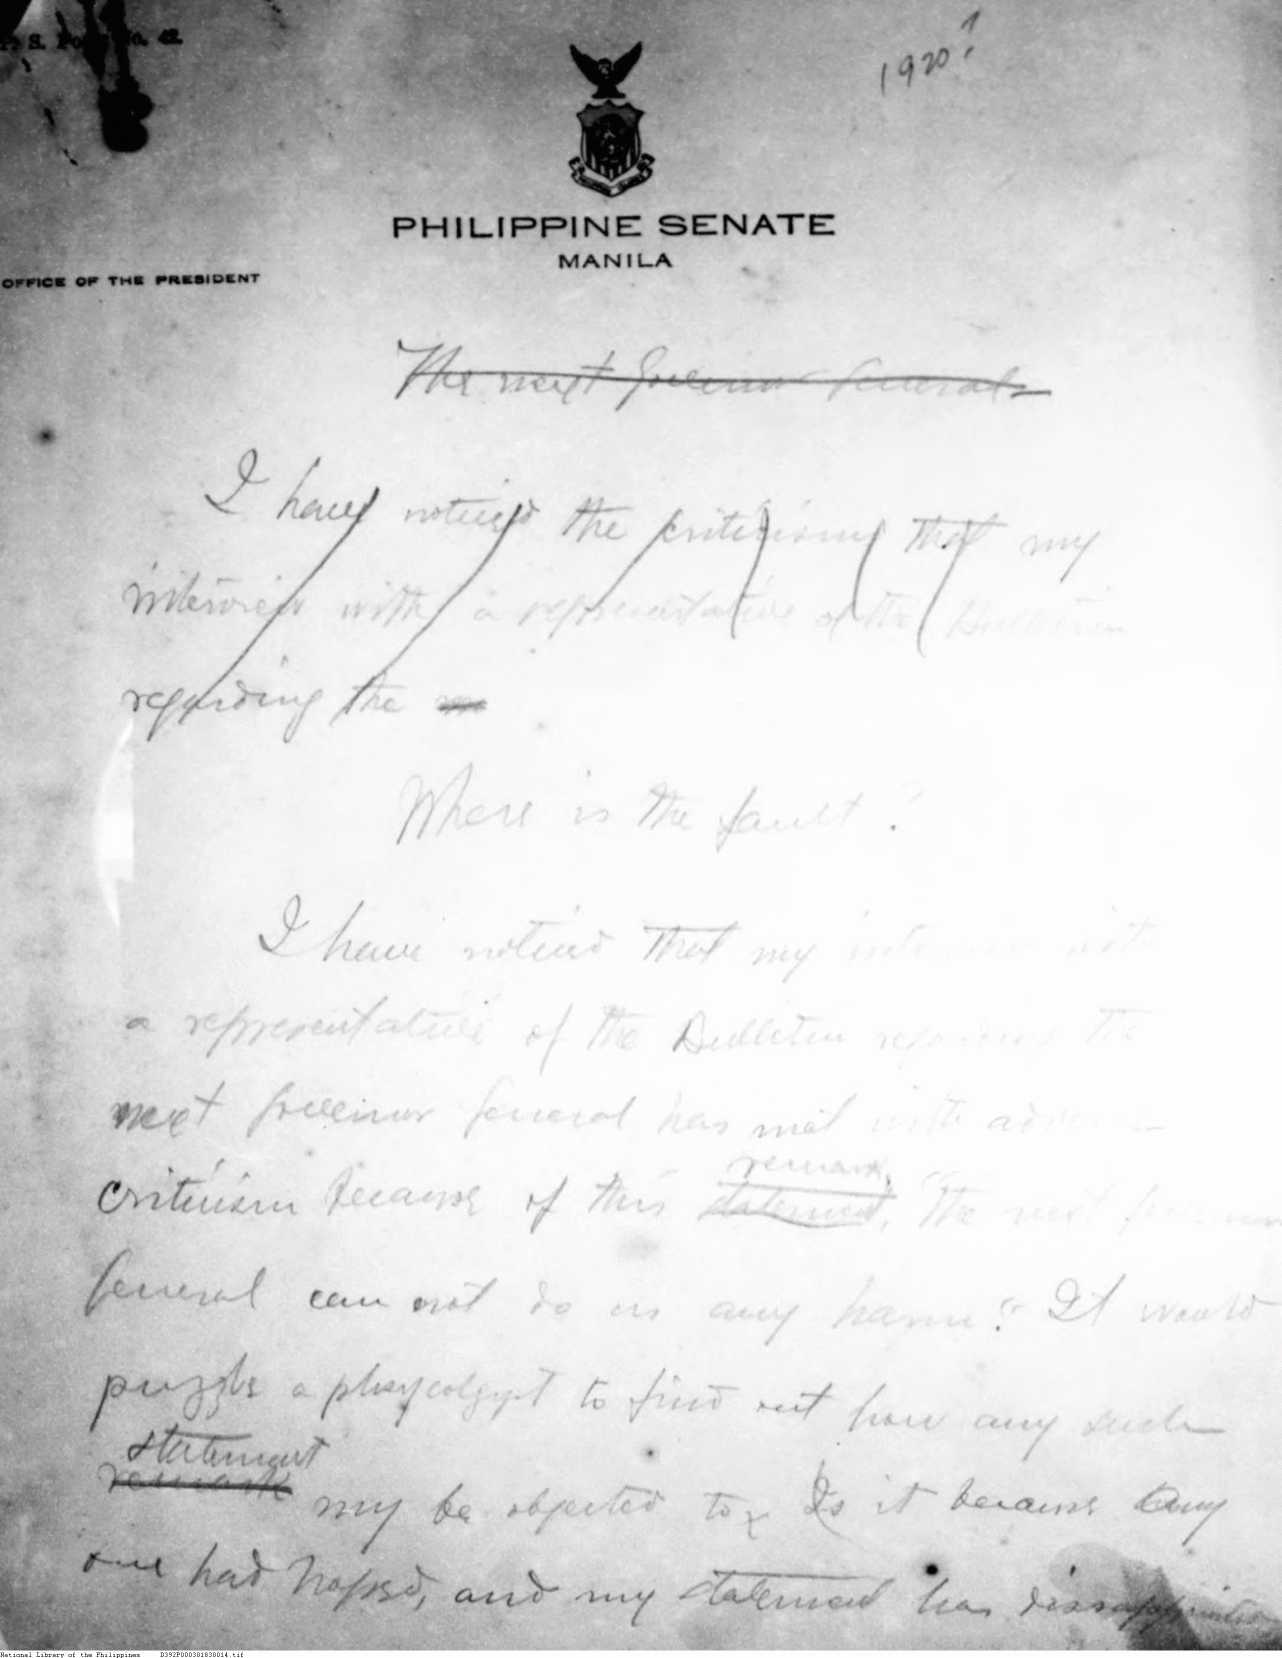 P. S. Form No. 42
1920?
PHILIPPINE SENATE
MANILA
OFFICE OF THE PRESIDENT
The next Governor General
I have noticed the criticisms that my
interview with a representative of the Bulletin
regarding the
Where is the fault?
I have noticed that my interview with
a representative of the Bulletin regarding the
next Governor General has met with adverse
remark,
criticism because of this statement, "The next Governor
General can not do us any harm." It would
puzzle a phsycologyst to find out how any such
statement
remark my be objected to. Is it because any
one had hoped, and my statement has dissappointed
National Library of the Philippines D392P000381838014.tif